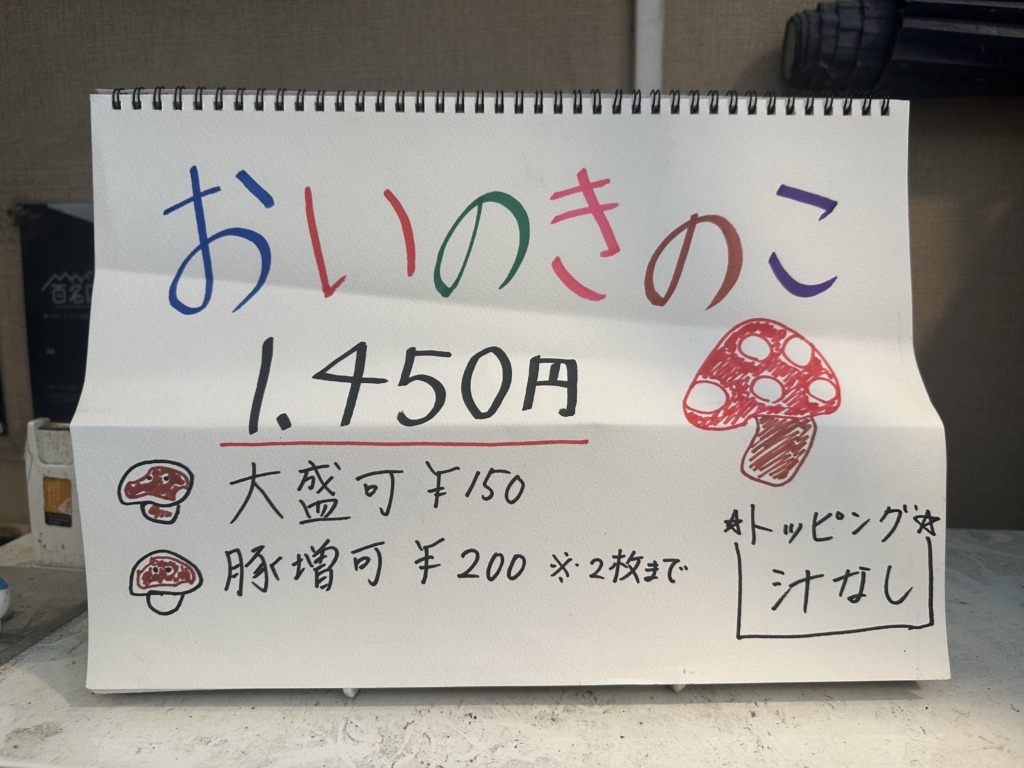 おいのきのこ
1.450円
大盛可 ¥150
豚増可 ¥200 ※2枚まで
☆トッピング☆
汁なし
百名店